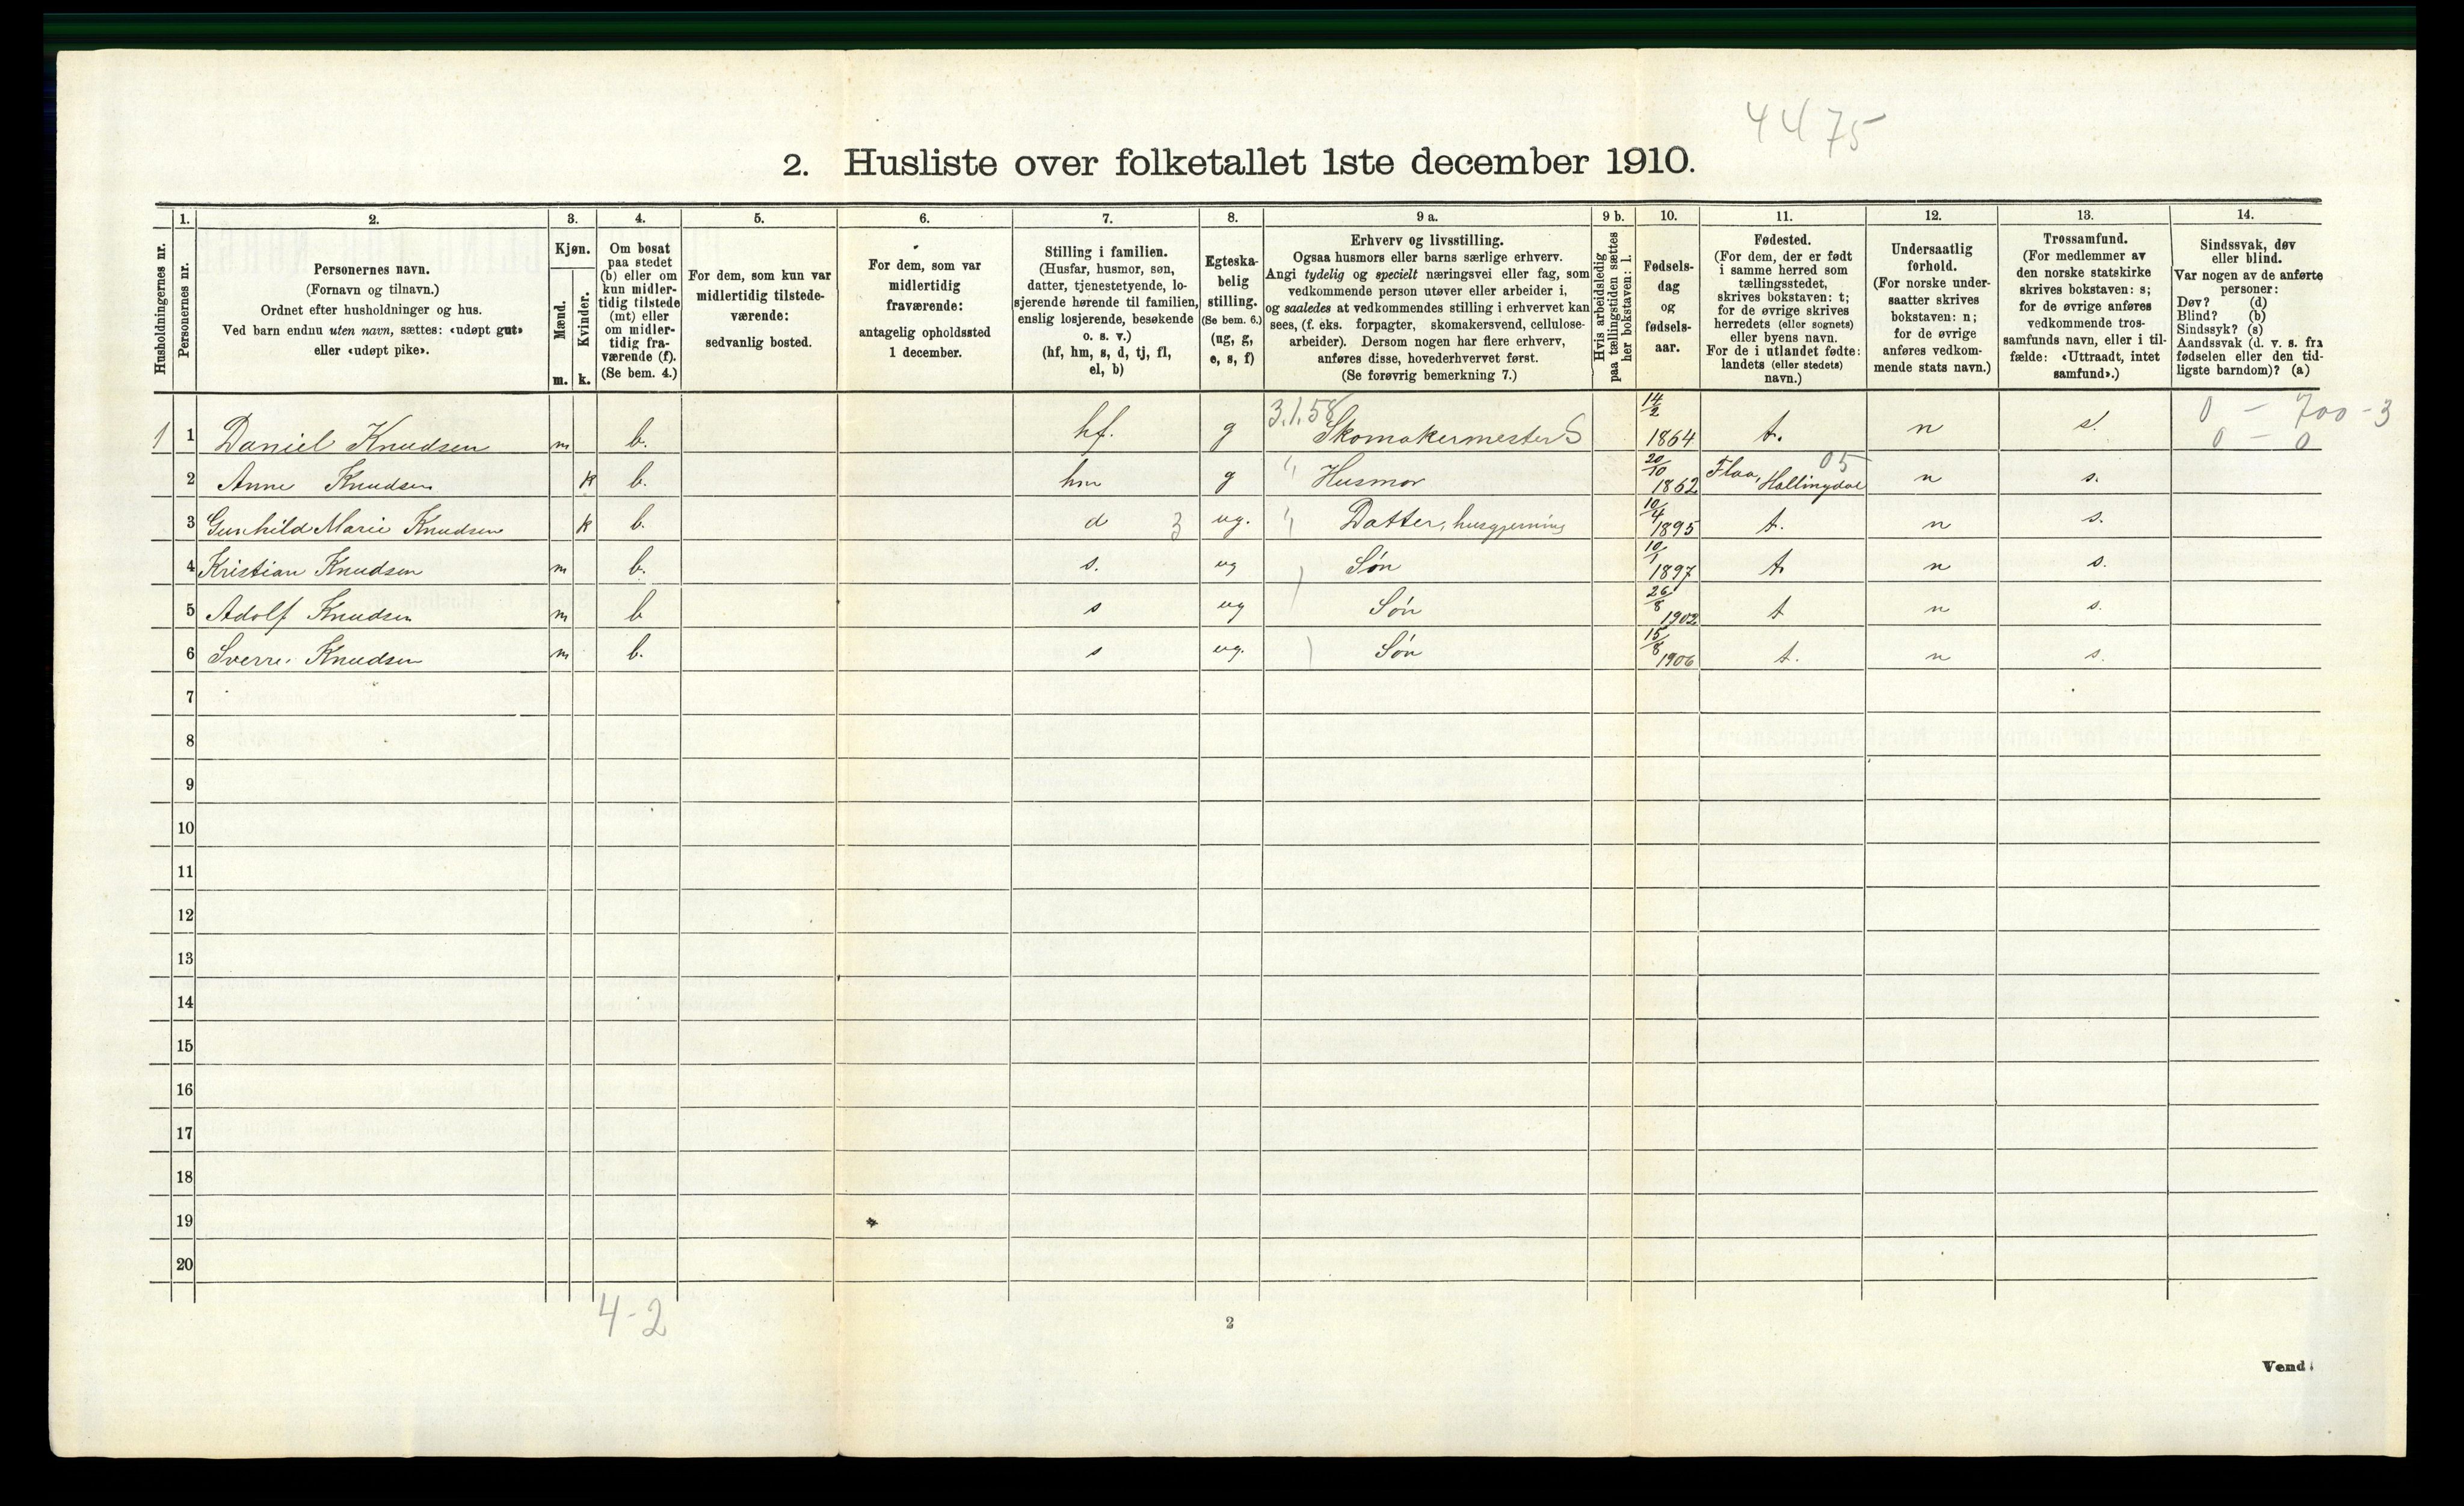 4475
2. Husliste over folketallet 1ste december 1910.
Husholdningernes nr.
1.
Personernes nr.
2.
Personernes navn.
(Fornavn og tilnavn.)
Ordnet efter husholdninger og hus.
Ved barn endnu uten navn, sættes: «udøpt gut»
eller «udøpt pike».
3.
Kjøn.
Mænd.
Kvinder.
m.
k.
4.
Om bosat
paa stedet
(b) eller om
kun midler-
tidig tilstede
(mt) eller
om midler-
tidig fra-
værende (f).
(Se bem. 4.)
5.
For dem, som kun var
midlertidig tilstede-
værende:
sedvanlig bosted.
6.
For dem, som var
midlertidig
fraværende:
antagelig opholdssted
1 december.
7.
Stilling i familien.
(Husfar, husmor, søn,
datter, tjenestetyende, lo-
sjerende hørende til familien,
enslig losjerende, besøkende
o. s. v.)
(hf, hm, s, d, tj, fl,
el, b)
8.
Egteska-
belig
stilling.
(Se bem. 6.)
(ug, g,
e, s, f)
9 a.
Erhverv og livsstilling.
Ogsaa husmors eller barns særlige erhverv.
Angi tydelig og specielt næringsvei eller fag, som
vedkommende person utøver eller arbeider i,
og saaledes at vedkommendes stilling i erhvervet kan
sees, (f. eks. forpagter, skomakersvend, cellulose-
arbeider). Dersom nogen har flere erhverv,
anføres disse, hovederhvervet først.
(Se forøvrig bemerkning 7.)
9 b.
Hvis arbeidsledig
paa tællingstiden sættes
her bokstaven: l.
10.
Fødsels-
dag
og
fødsels-
aar.
11.
Fødested.
(For dem, der er født
i samme herred som
tællingsstedet,
skrives bokstaven: t;
for de øvrige skrives
herredets (eller sognets)
eller byens navn.
For de i utlandet fødte:
landets (eller stedets)
navn.)
12.
Undersaatlig
forhold.
(For norske under-
saatter skrives
bokstaven: n;
for de øvrige
anføres vedkom-
mende stats navn.)
13.
Trossamfund.
(For medlemmer av
den norske statskirke
skrives bokstaven: s;
for de øvrige anføres
vedkommende tros-
samfunds navn, eller i til-
fælde: «Uttraadt, intet
samfund».)
14.
Sindssvak, døv
eller blind.
Var nogen av de anførte
personer:
Døv? (d)
Blind? (b)
Sindssyk? (s)
Aandssvak (d. v. s. fra
fødselen eller den tid-
ligste barndom)? (a)
1 1 Daniel Knudsen m b. hf. g 3.1.58 Skomakermester S 14/2 1864 t. n s. 0 - 700 - 3
0 - 0
2 Anne Knudsen k b. hm g " Husmor 20/10 1862 Flaa, Hallingdal 05 n s.
3 Gunhild Marie Knudsen k b. d 3 ug. " Datter, husgjerning 10/4 1895 t. n s.
4 Kristian Knudsen m b. s. ug Søn 10/1 1897 t. n s.
5 Adolf Knudsen m b s ug Søn 26/8 1902 t n s.
6 Sverre Knudsen m b. s ug. Søn 15/8 1906 t. n s.
7
8
9
10
11
12
13
14
15
16
17
18
19
20
4-2
2
Vend!